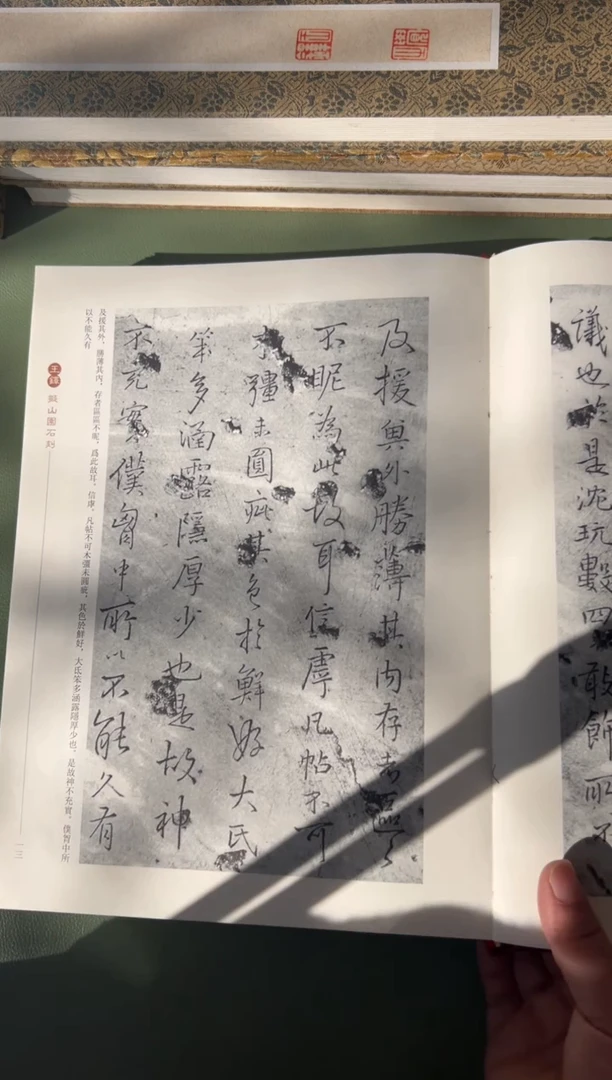 議也於是沈玩數四敢飾
及援與外勝薄其内存者區々
不昵為此故耳信虖凡帖不可
木彊未圓疵其色於鮮好大氏
笨多涵露隱厚少也是故神
不充實僕胷中所以不能久有
及援其外，勝薄其内，存者區區不昵，爲此故耳，信虖，凡帖不可木彊未圓疵，其色於鮮好，大氐笨多涵露隱厚少也，是故神不充實，僕胷中所
以不能久有
王鐸 擬山園石刻
一三